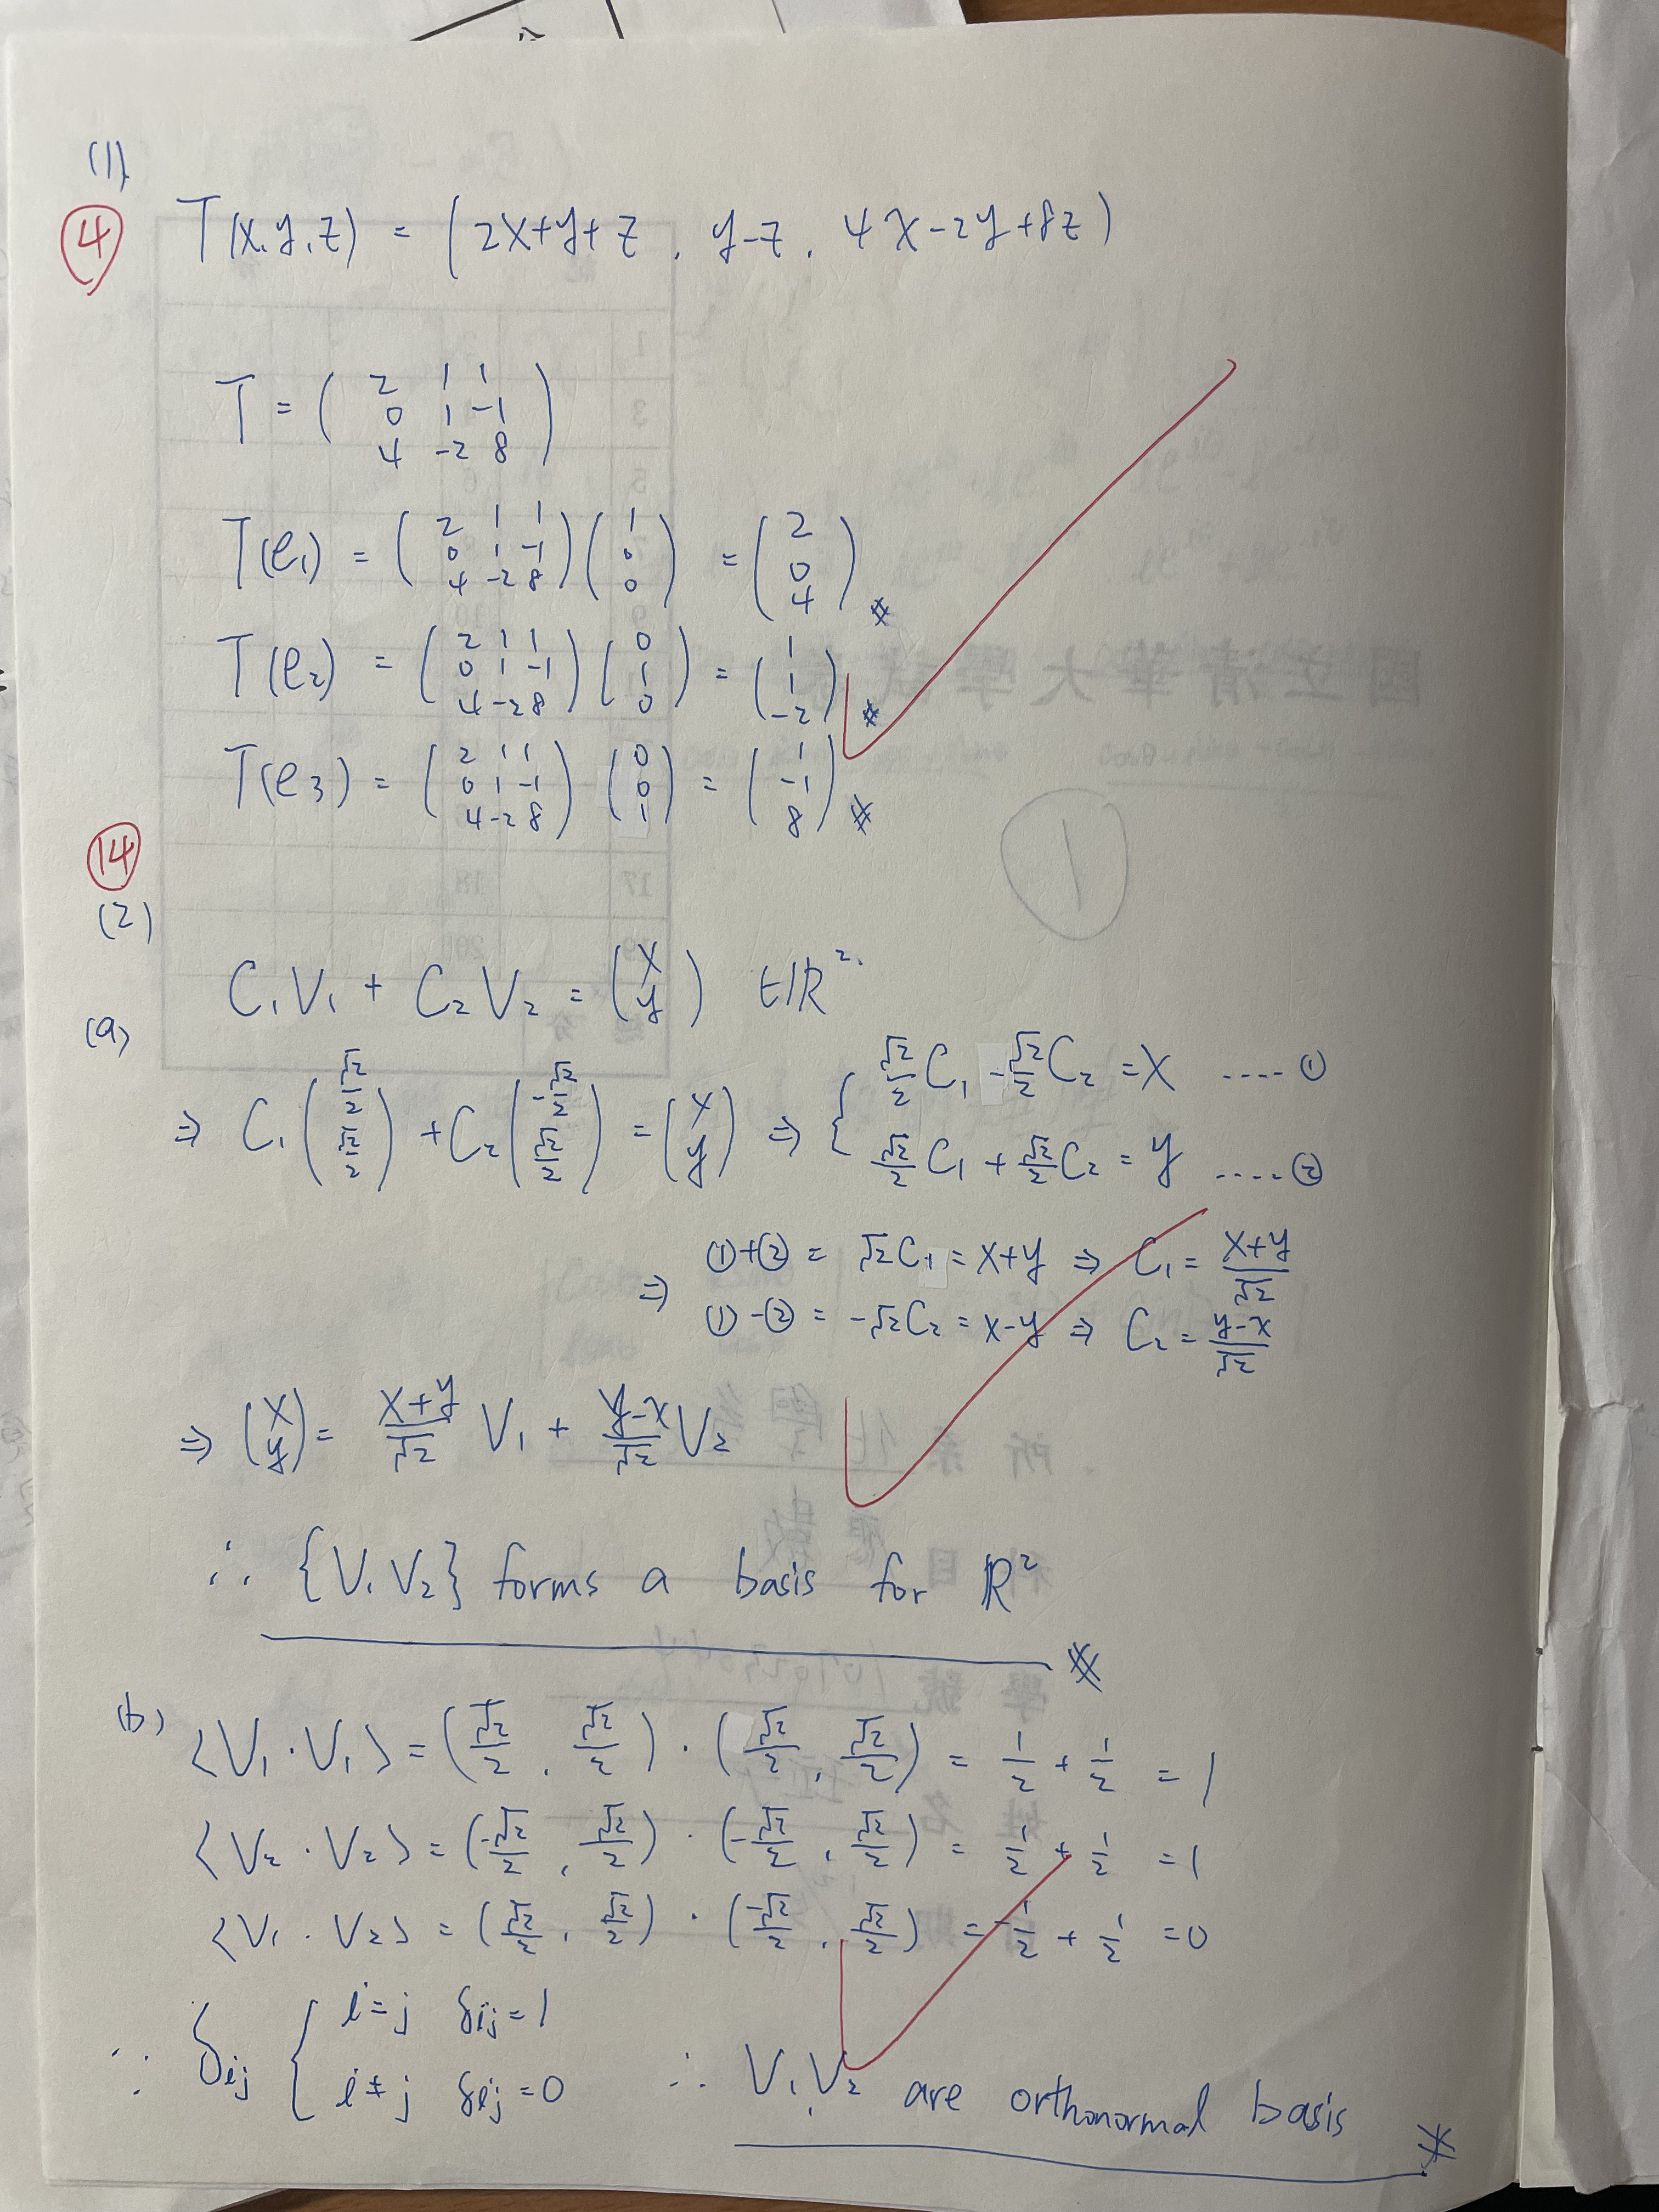 (1)
④ T(x,y,z) = (2x+y+z, y-z, 4x-2y+8z)
T = ( 2 1 1
0 1 -1
4 -2 8 )
T(e₁) = ( 2 1 1 ; 0 1 -1 ; 4 -2 8 ) ( 1 ; 0 ; 0 ) = ( 2 ; 0 ; 4 ) #
T(e₂) = ( 2 1 1 ; 0 1 -1 ; 4 -2 8 ) ( 0 ; 1 ; 0 ) = ( 1 ; 1 ; -2 ) #
T(e₃) = ( 2 1 1 ; 0 1 -1 ; 4 -2 8 ) ( 0 ; 0 ; 1 ) = ( 1 ; -1 ; 8 ) #
⑭
(2)
C₁V₁ + C₂V₂ = ( x ; y ) ∈ ℝ².
(a)
⇒ C₁( √2/2 ; √2/2 ) + C₂( -√2/2 ; √2/2 ) = ( x ; y ) ⇒ { √2/2 C₁ - √2/2 C₂ = x ....①
√2/2 C₁ + √2/2 C₂ = y ....②
⇒ ①+② = √2C₁ = x+y ⇒ C₁ = (x+y)/√2
①-② = -√2C₂ = x-y ⇒ C₂ = (y-x)/√2
⇒ ( x ; y ) = (x+y)/√2 V₁ + (y-x)/√2 V₂
∴ {V₁ V₂} forms a basis for ℝ²
#
(b) <V₁·V₁> = (√2/2, √2/2)·(√2/2, √2/2) = 1/2 + 1/2 = 1
<V₂·V₂> = (-√2/2, √2/2)·(-√2/2, √2/2) = 1/2 + 1/2 = 1
<V₁·V₂> = (√2/2, √2/2)·(-√2/2, √2/2) = -1/2 + 1/2 = 0
∵ δij { i=j δij=1
i≠j δij=0
∴ V₁, V₂ are orthonormal basis
#